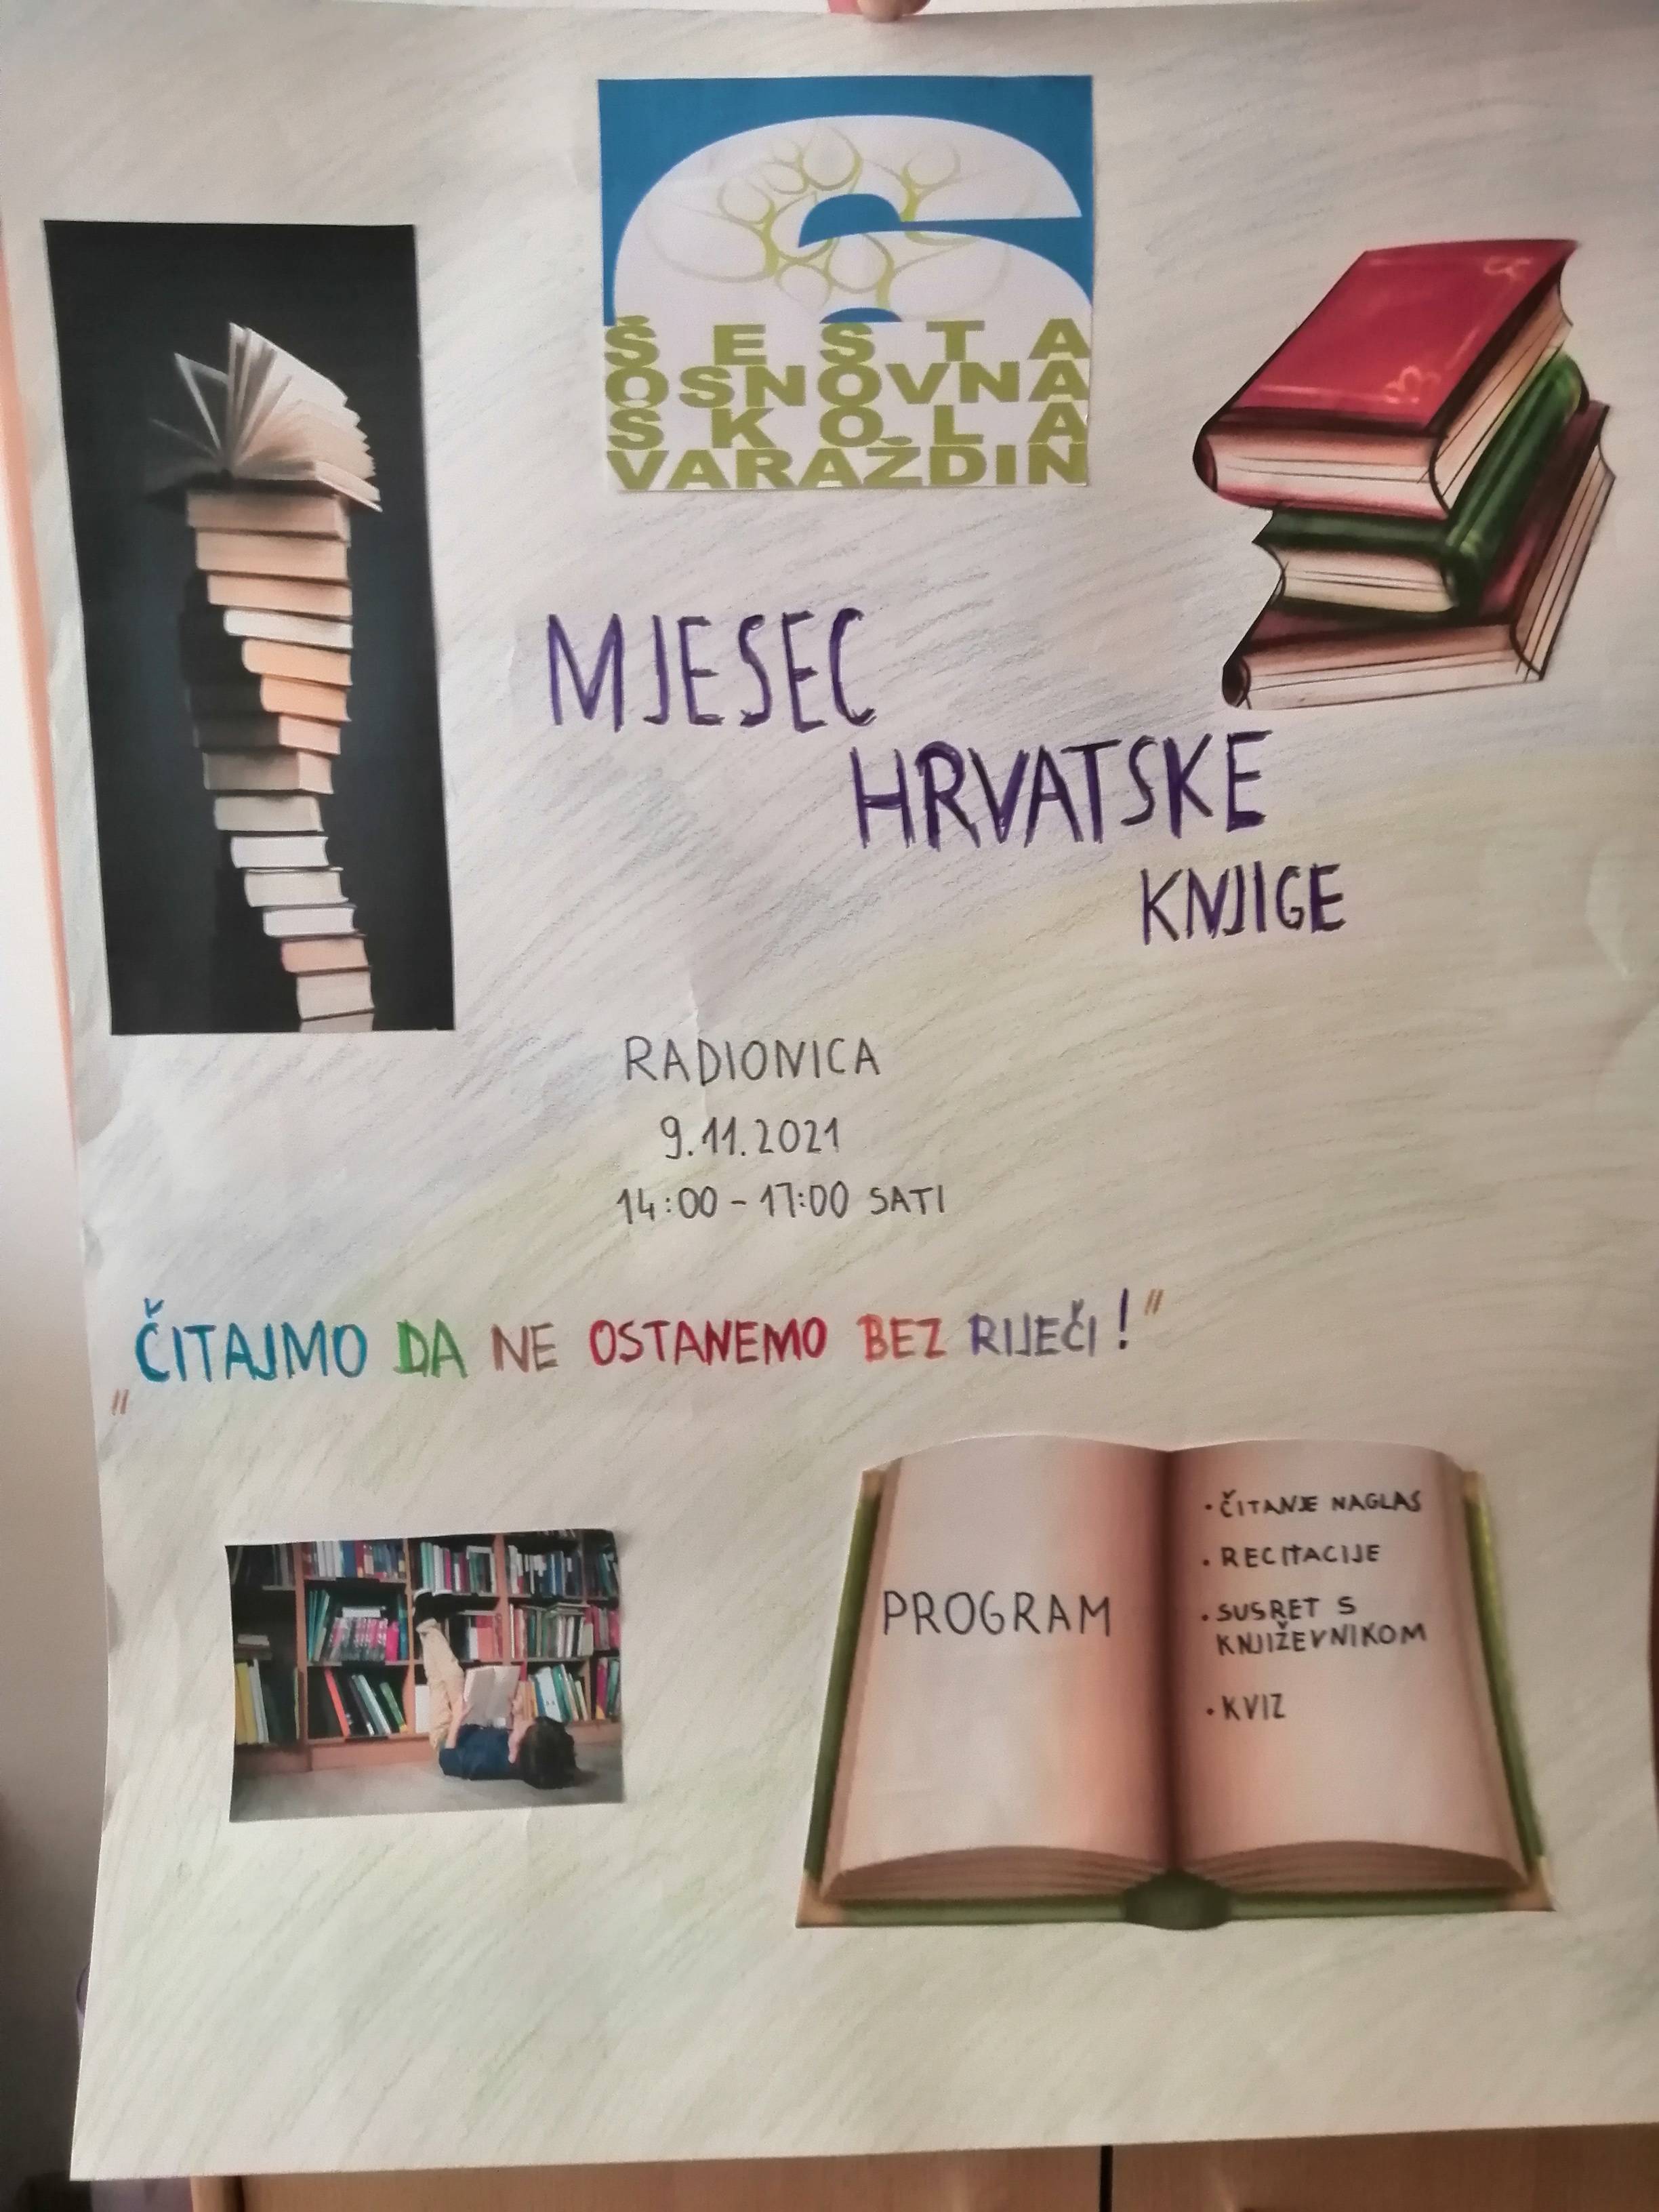 ŠESTA
OSNOVNA
ŠKOLA
VARAŽDIN
MJESEC
HRVATSKE
KNJIGE
RADIONICA
9.11.2021
14:00 - 17:00 SATI
„ČITAJMO DA NE OSTANEMO BEZ RIJEČI!"
PROGRAM
• ČITANJE NAGLAS
• RECITACIJE
• SUSRET S
KNJIŽEVNIKOM
• KVIZ